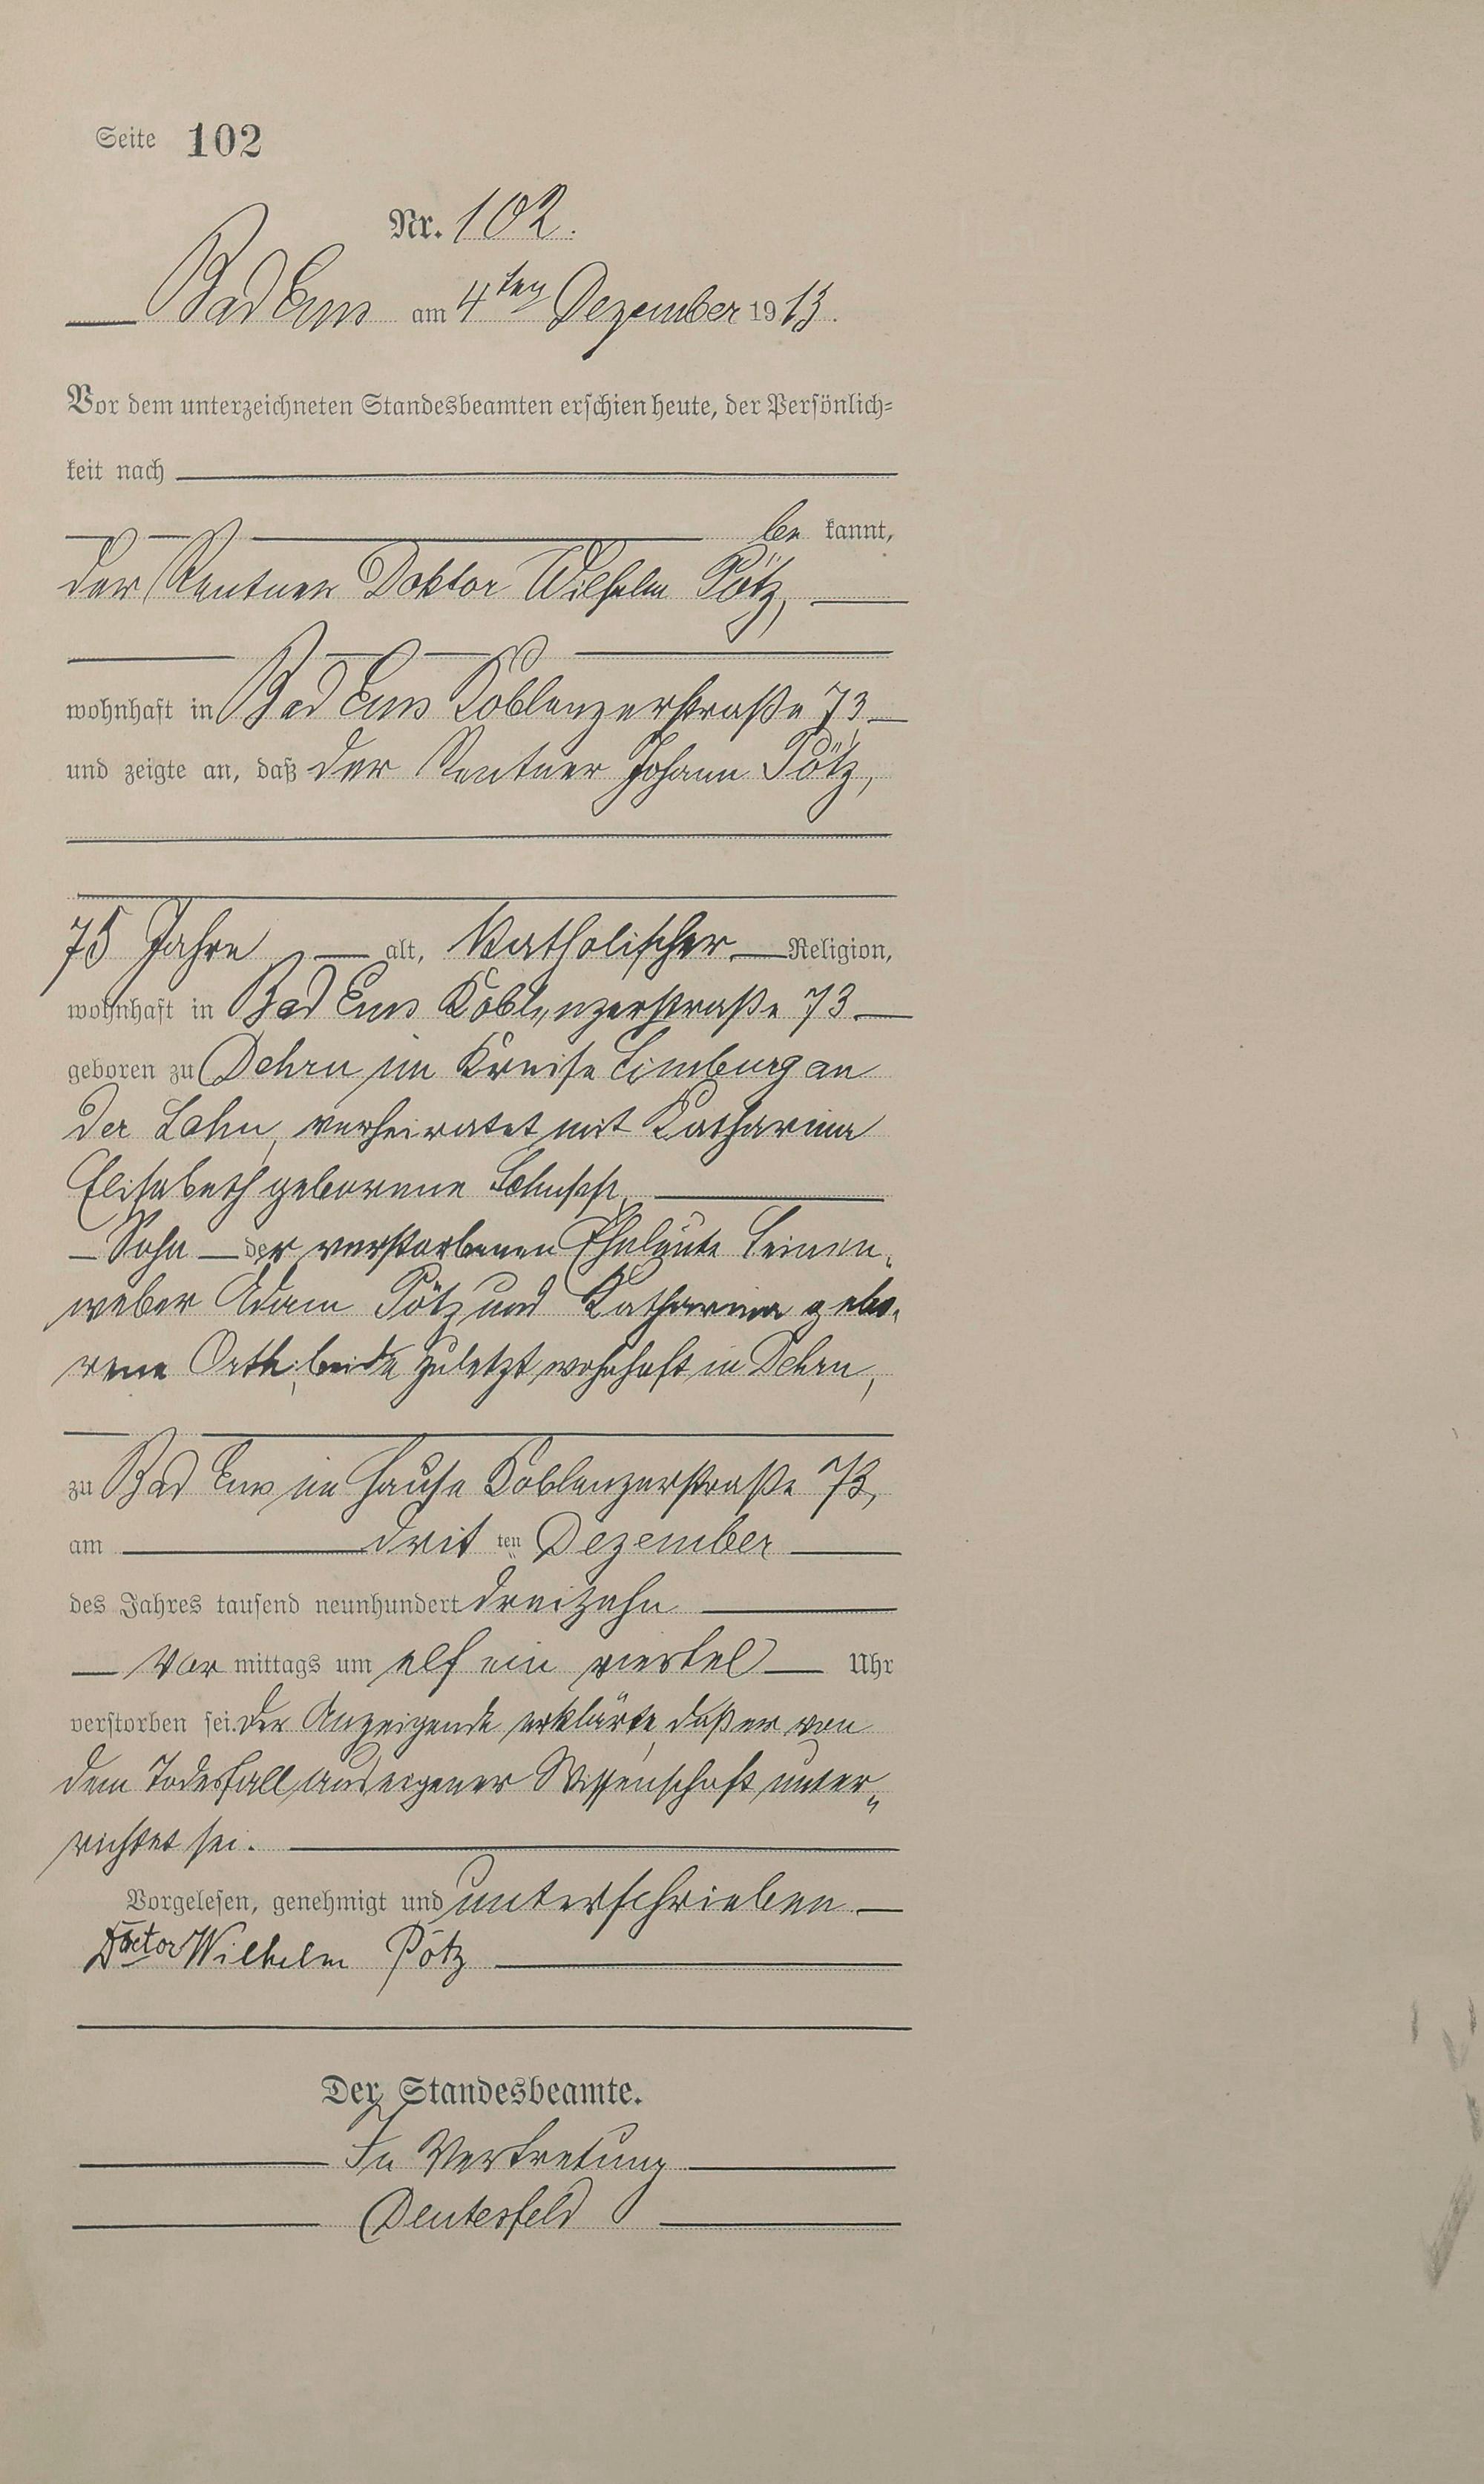 Seite 102
Nr. 102.
Bad Ems am 4ten Dezember 1913.
Vor dem unterzeichneten Standesbeamten erschien heute, der Persönlich-
keit nach
be kannt,
der Rentner Doktor Wilhelm Pötz,
wohnhaft in Bad Ems Koblenzerstraße 73
und zeigte an, daß der Rentner Johann Pötz,
75 Jahre alt, katholischer Religion,
wohnhaft in Bad Ems Koblenzerstraße 73
geboren zu Dehrn im Kreise Limburg an
der Lahn, verheiratet mit Katharina
Elisabeth geborene
Sohn der verstorbenen Eheleute Leinen-
weber Adam Pötz und Katharina gebo-
rene Orth, beide zuletzt wohnhaft in Dehrn,
zu Bad Ems im Hause Koblenzerstraße 73,
am drit ten Dezember
des Jahres tausend neunhundert dreizehn
Vor mittags um elf ein viertel Uhr
verstorben sei. Der Anzeigende erklärte, daß er von
dem Todesfall aus eigener Wissenschaft unter-
richtet sei.
Vorgelesen, genehmigt und unterschrieben
Doctor Wilhelm Pötz
Der Standesbeamte.
In Vertretung
Deutesfeld